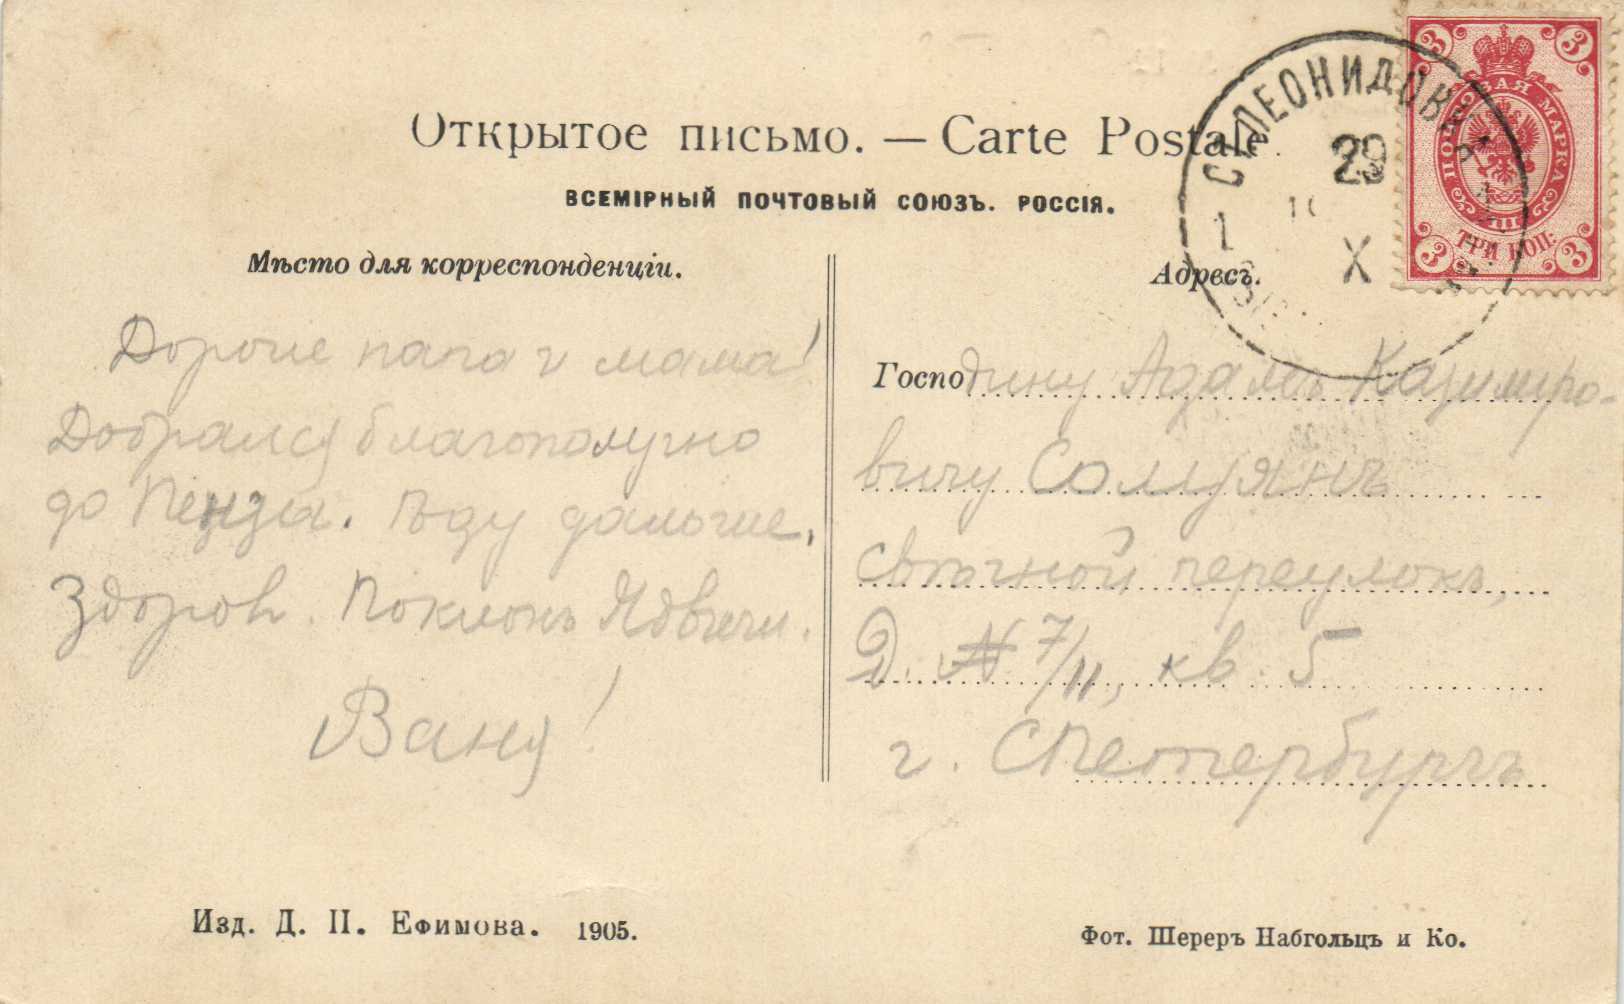 Открытое письмо. — Carte Postale.
ВСЕМІРНЫЙ ПОЧТОВЫЙ СОЮЗЪ. РОССІЯ.
Мѣсто для корреспонденціи.
Адресъ.
ПОЧТОВАЯ МАРКА
ТРИ КОП.
3 3 3 3
ЛЕОНИДОВ
29
X
Дорогие папа и мама!
Добрался благополучно
до Пензы. Ѣду дальше,
Здоров. Поклонъ
Ваня!
Господину Адаму Казимиро-
вичу
переулокъ,
Д. № 7/11, кв. 5
г. СПетербургъ
Изд. Д. П. Ефимова. 1905.
Фот. Шереръ Набгольцъ и Ко.